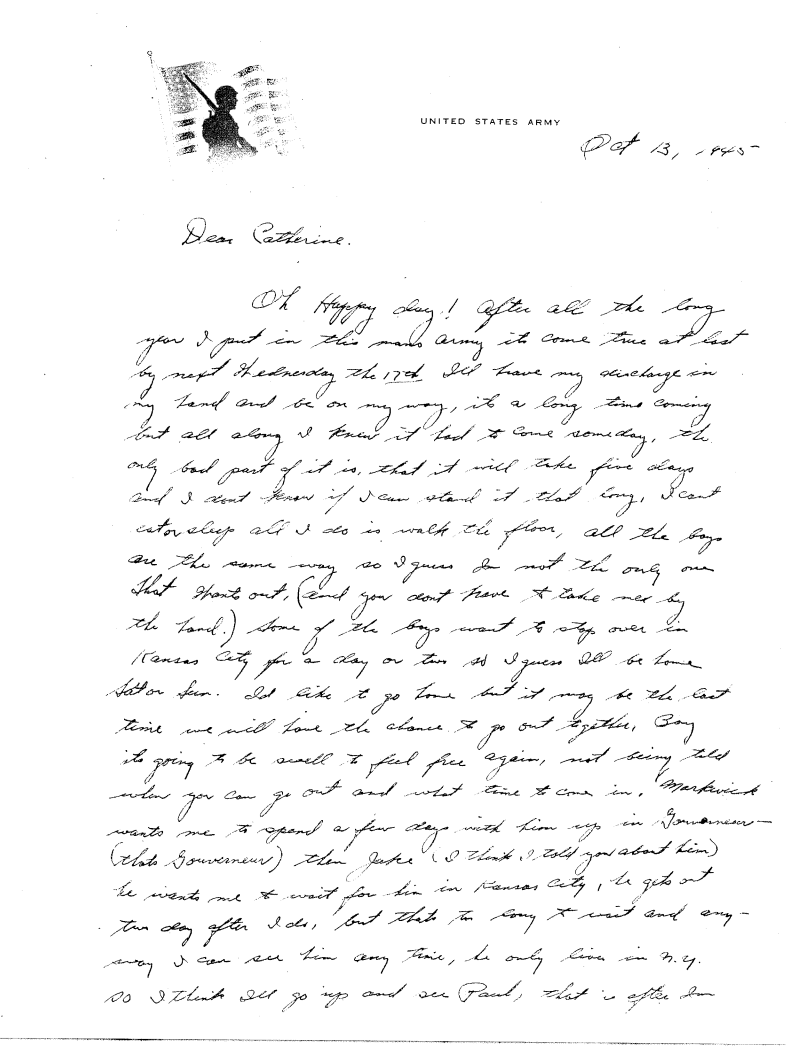 UNITED STATES ARMY
Oct 13, 1945
Dear Catherine.
Oh Happy day! After all the long
year I put in this mans army its come true at last
by next Wednesday the 17th Ill have my discharge in
my hand and be on my way, its a long time coming
but all along I knew it had to come someday, the
only bad part of it is, that it will take five days
and I dont know if I can stand it that long, I cant
eat or sleep all I do is walk the floor, all the boys
are the same way so I guess Im not the only one
that wants out, (and you dont have to take me by
the hand.) Some of the boys want to stop over in
Kansas City for a day or two so I guess Ill be home
Sat or Sun. Id like to go home but it may be the last
time we will have the chance to go out together, Boy
its going to be swell to feel free again, not being told
when you can go out and what time to come in. Markwick
wants me to spend a few days with him up in Gouverneur
(thats Gouverneur) then Jake (I think I told you about him)
he wants me to wait for him in Kansas City, he gets out
two day after I do, but thats to long to wait and any-
way I can see him any time, he only lives in N.Y.
so I think Ill go up and see Paul, that is after Im